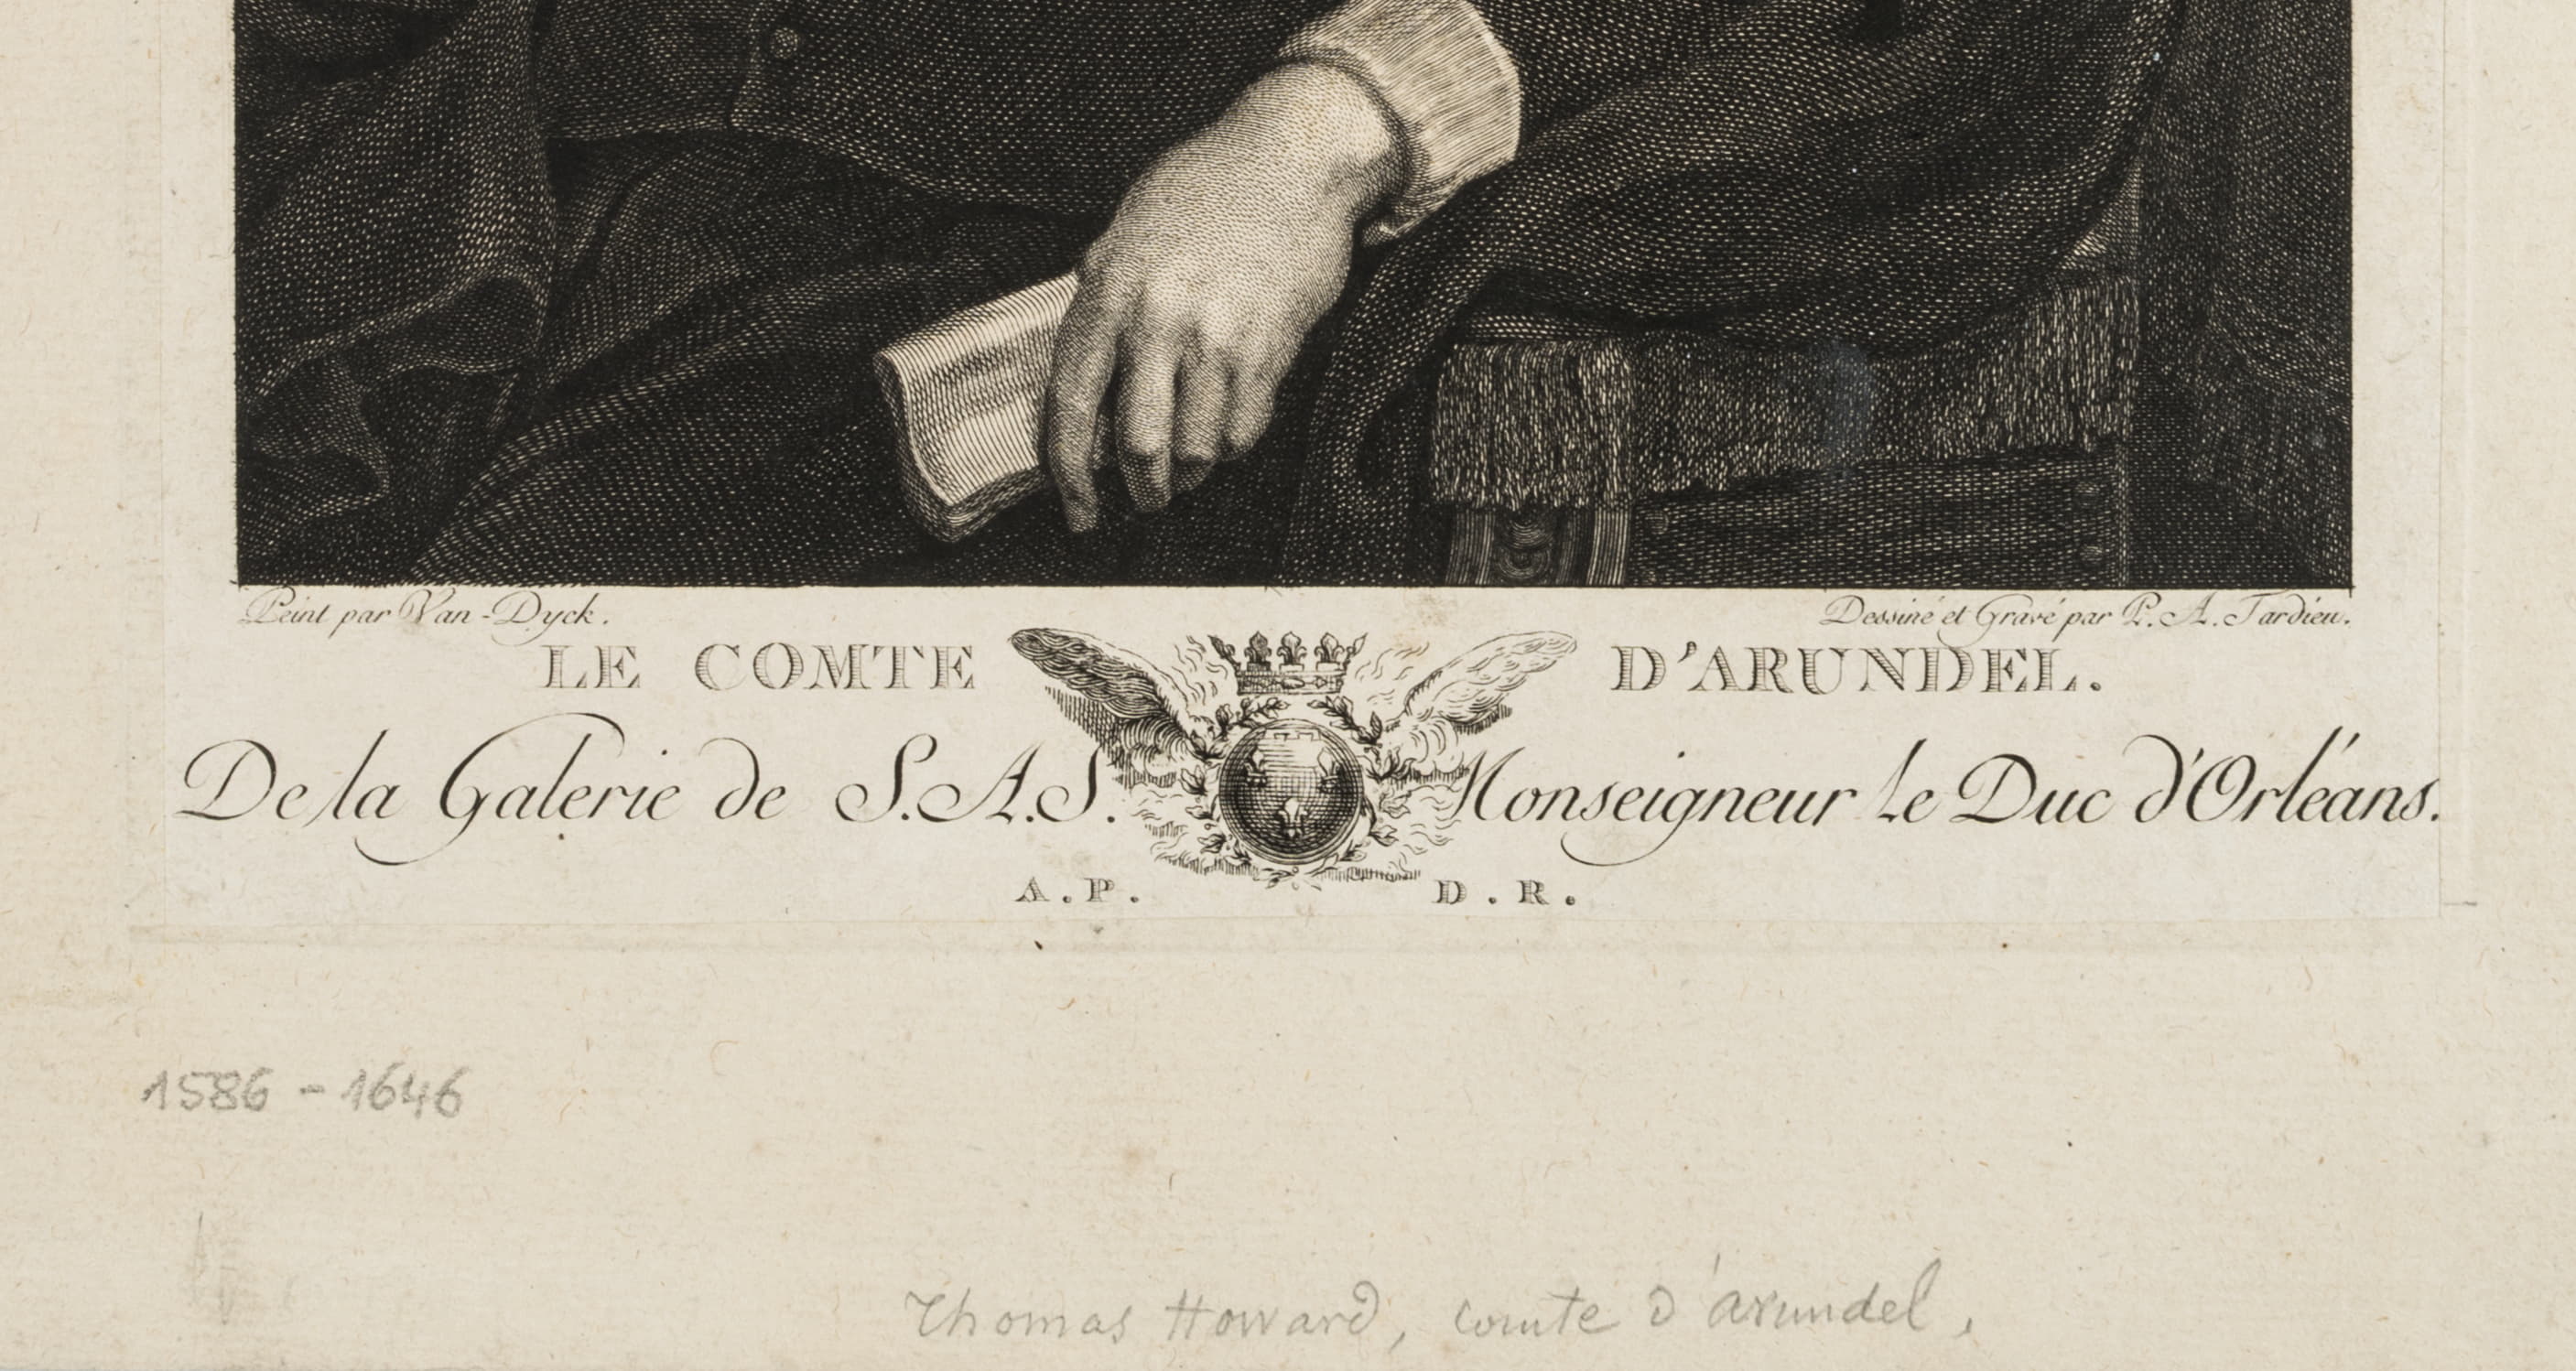 Peint par Van-Dyck.
Dessiné et Gravé par P. A. Tardieu.
LE COMTE D'ARUNDEL.
De la Galerie de S.A.S. Monseigneur Le Duc d'Orléans.
A. P. D. R.
1586 - 1646
Thomas Howard, comte d'arundel,